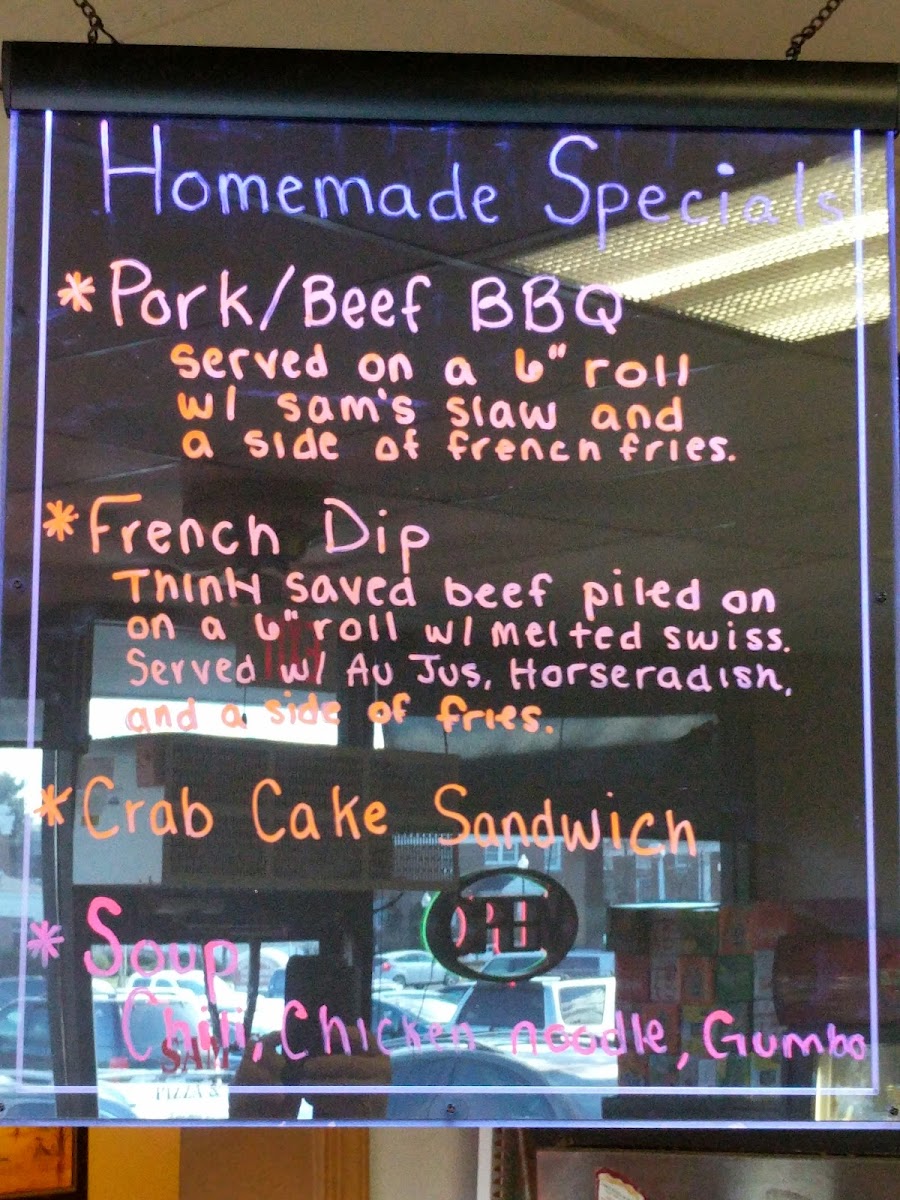 Homemade Specials
*Pork/Beef BBQ
served on a 6" roll
w/ sam's slaw and
a side of french fries.
*French Dip
Thinly saved beef piled on
on a 6" roll w/ melted swiss.
Served w/ Au Jus, Horseradish,
and a side of fries.
*Crab Cake Sandwich
OPEN
*Soup
Chili, Chicken noodle, Gumbo
SAM
PIZZA &